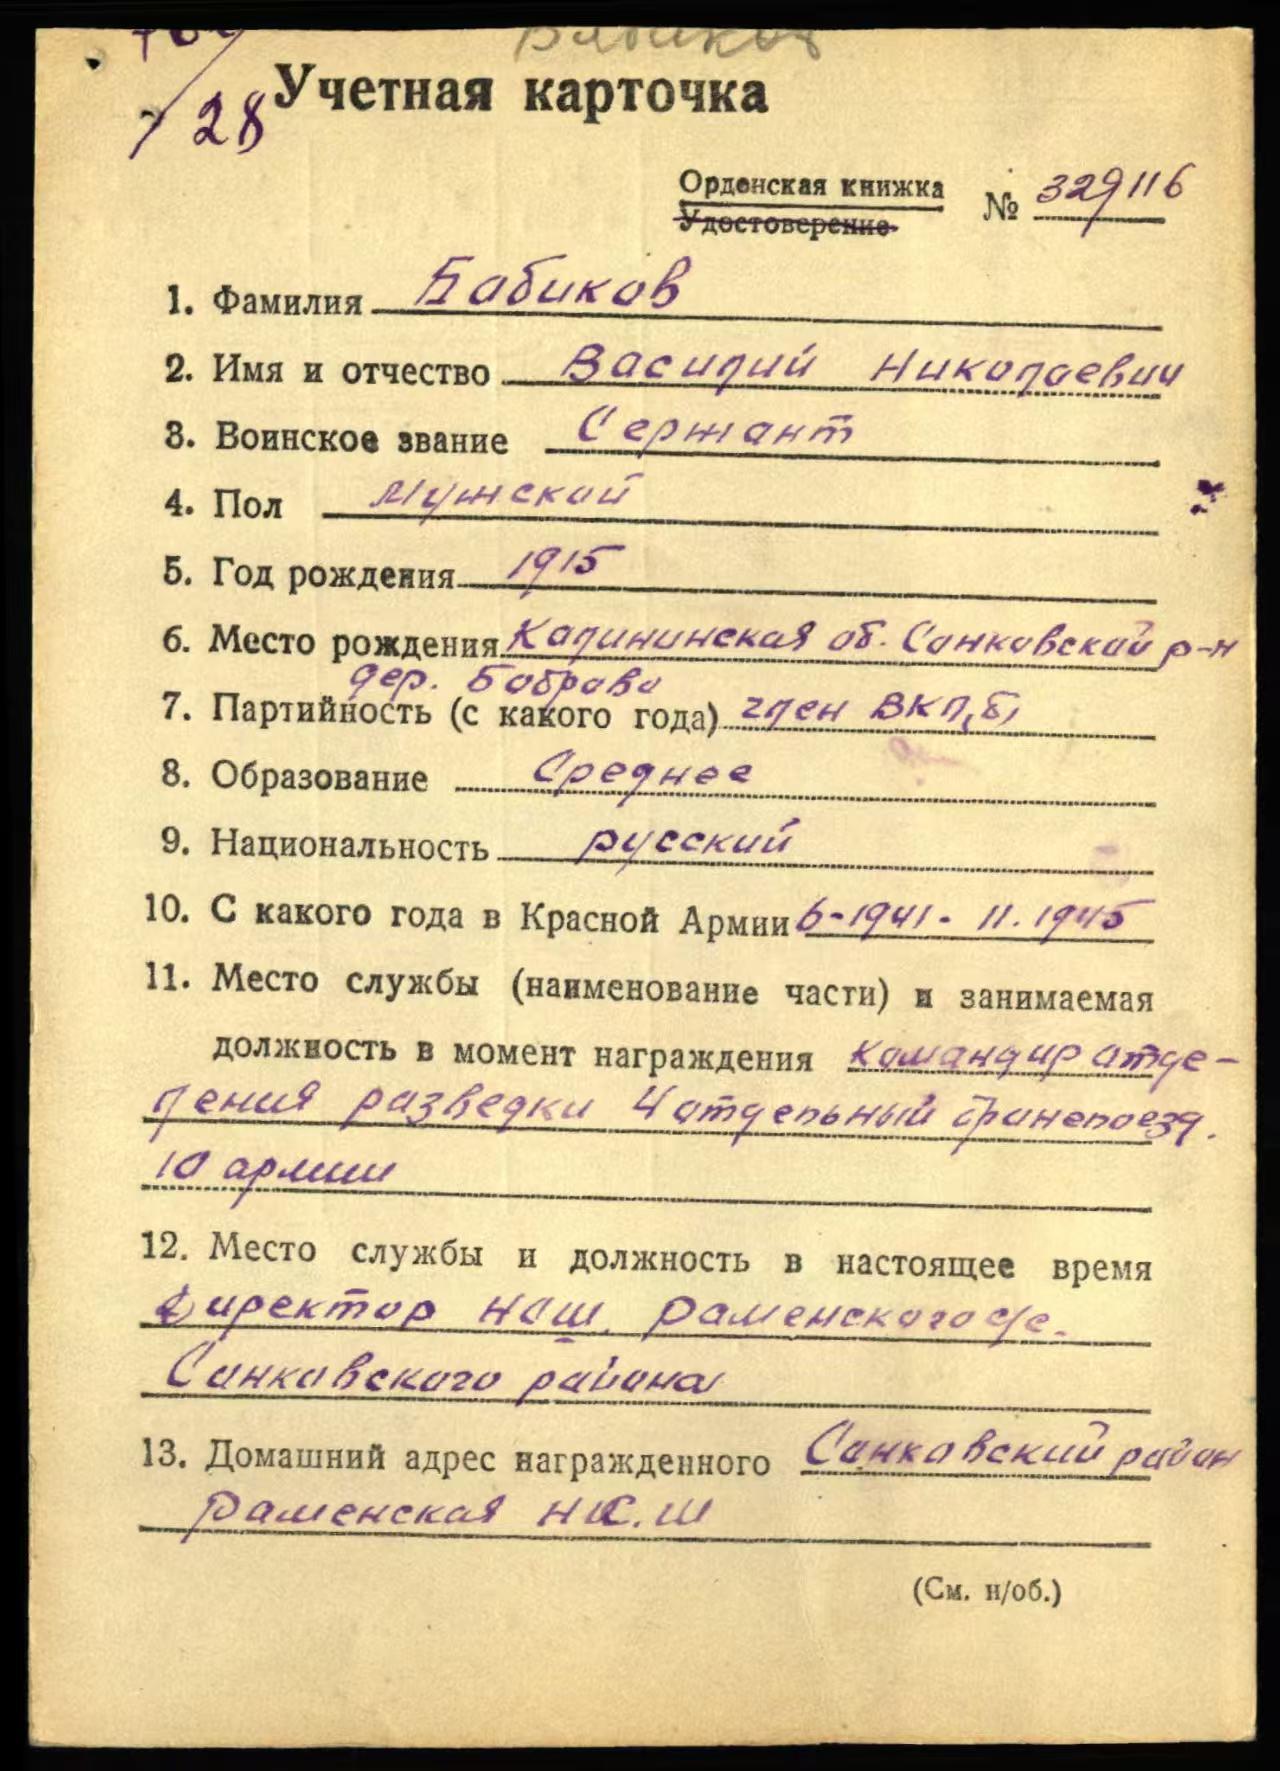 Бабиков
28
Учетная карточка
Орденская книжка
Удостоверение
№ 329116
1. Фамилия Бабиков
2. Имя и отчество Василий Николаевич
3. Воинское звание Сержант
4. Пол мужской
5. Год рождения 1915
6. Место рождения Калининская об. Сонковский р-н
дер. Боброво
7. Партийность (с какого года) член ВКП(б)
8. Образование Среднее
9. Национальность русский
10. С какого года в Красной Армии 6-1941- 11.1945
11. Место службы (наименование части) и занимаемая
должность в момент награждения командир отде-
ления разведки 4 отдельный бронепоезд.
10 армии
12. Место службы и должность в настоящее время
Директор Раменского
Сонковского района
13. Домашний адрес награжденного Сонковский район
Раменская Н.С.Ш
(См. н/об.)